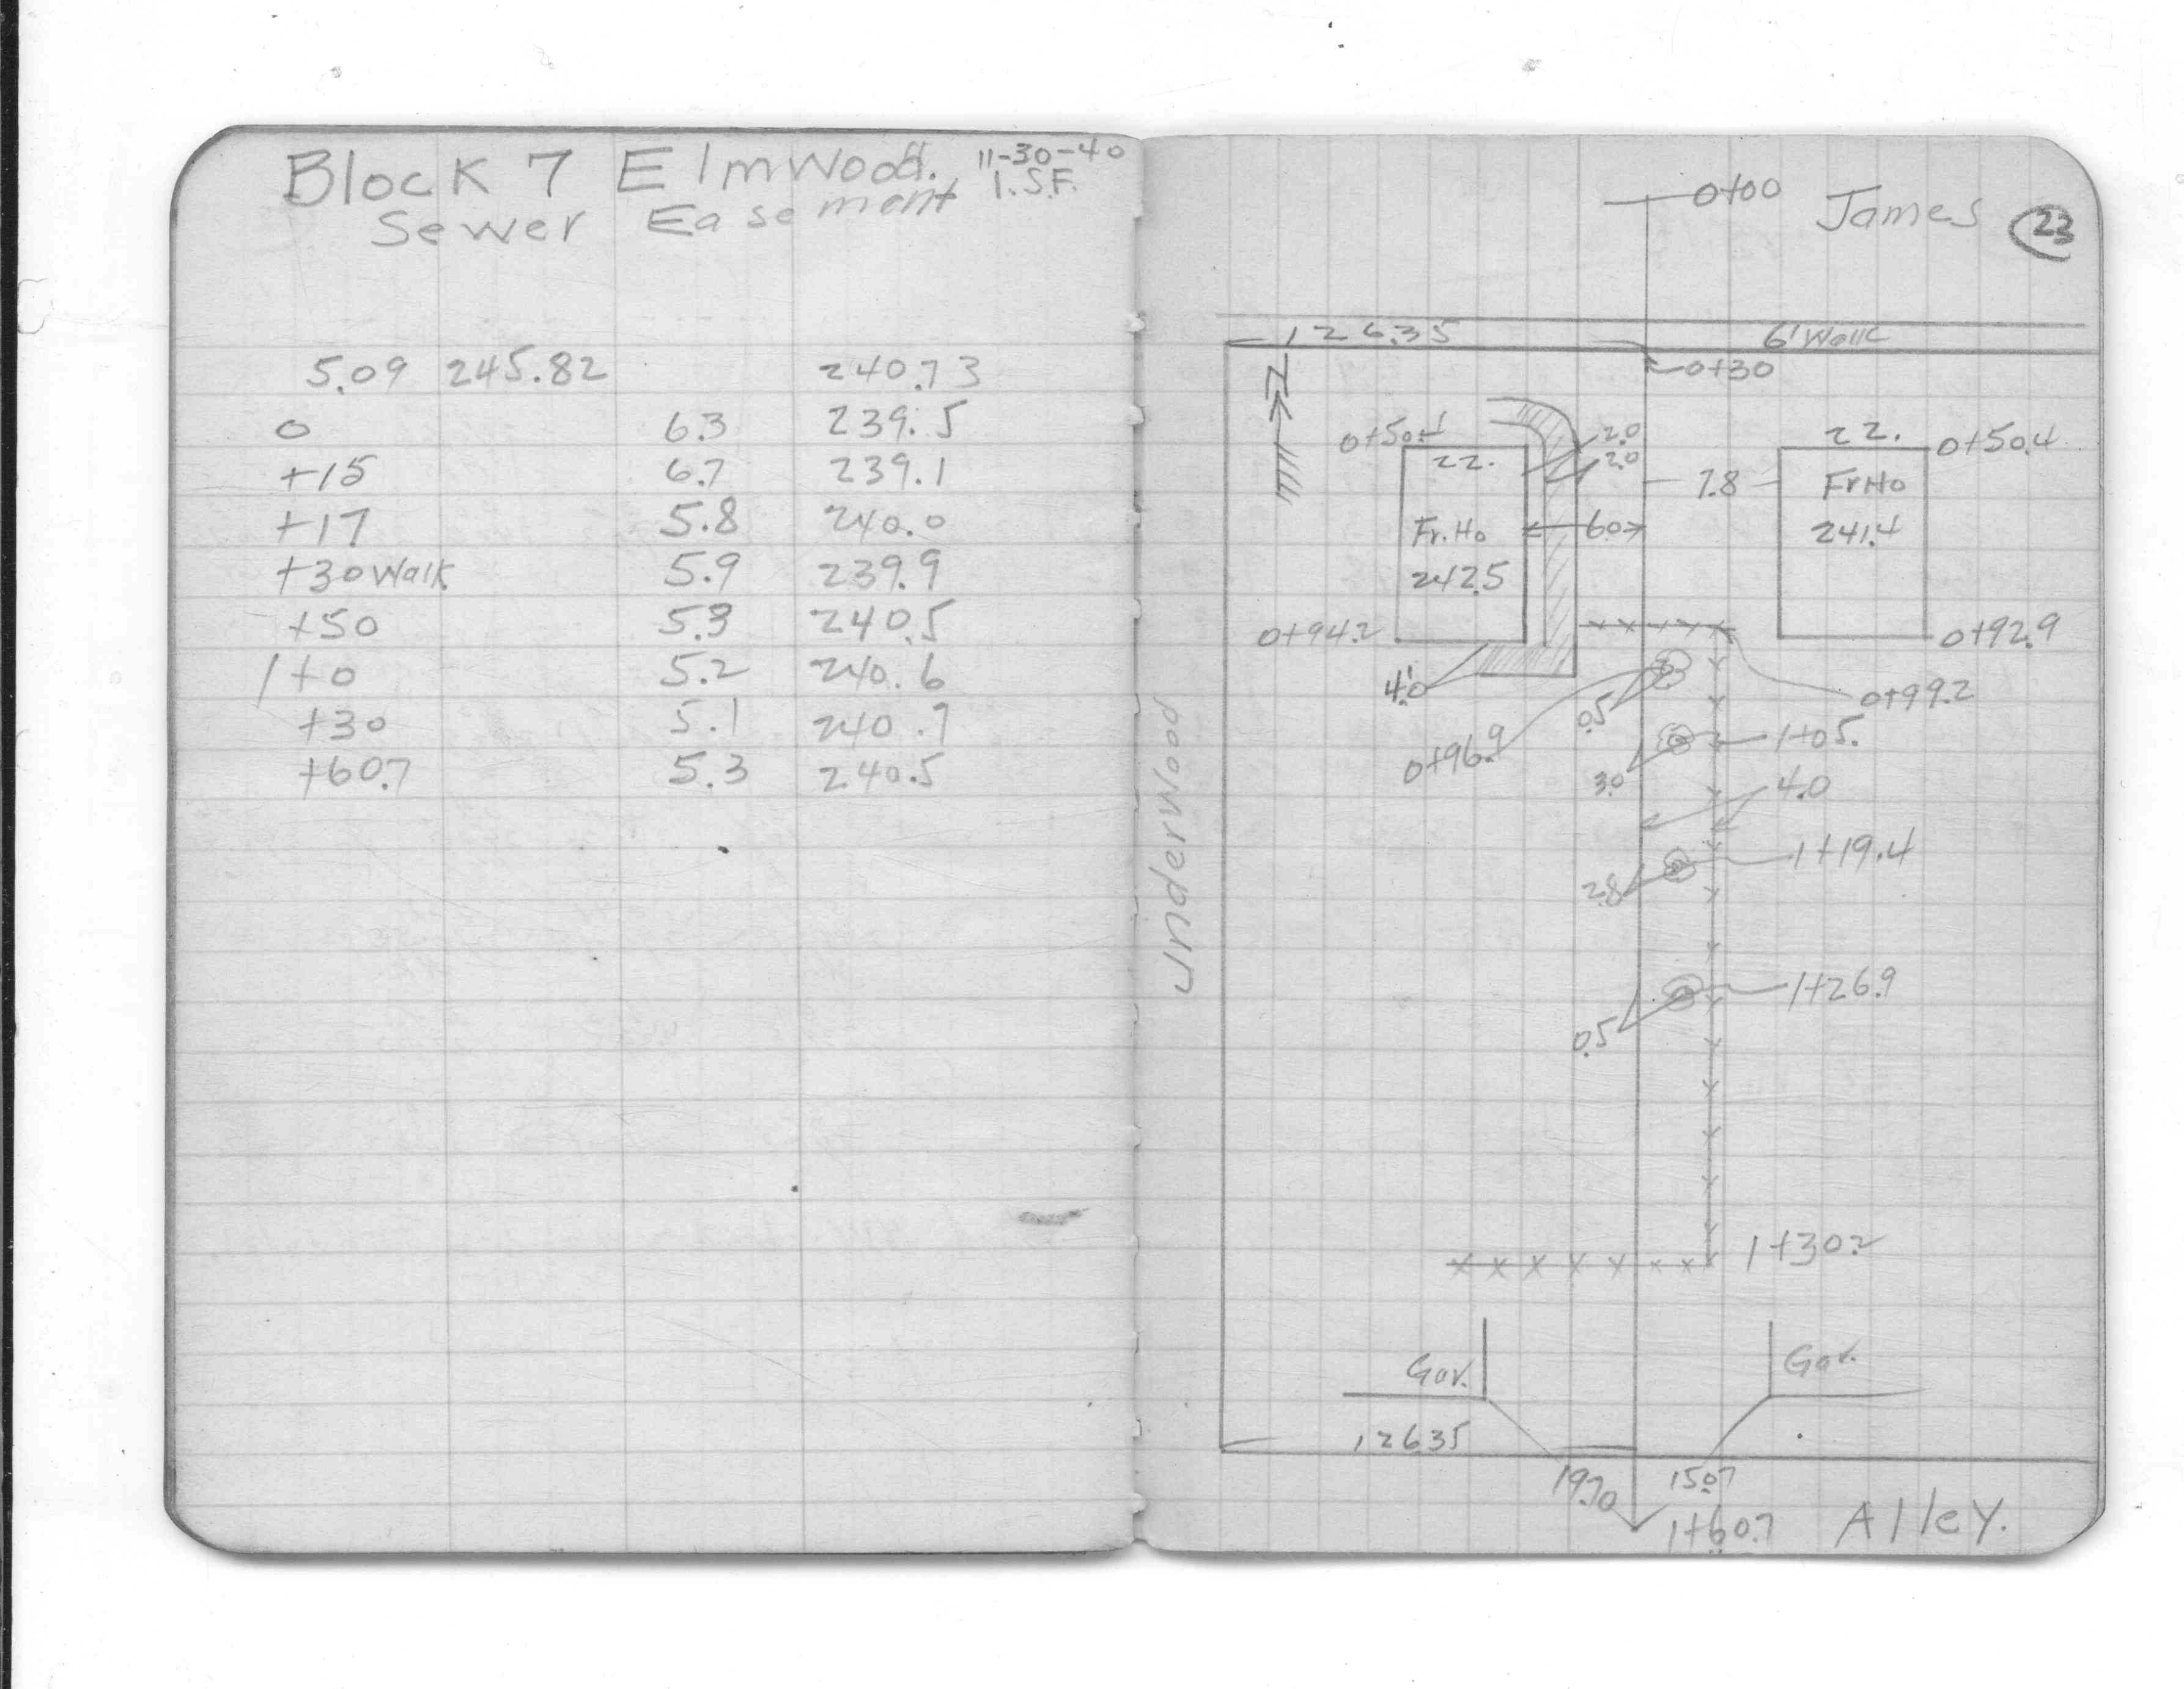 Block 7 Elmwood. 11-30-40
Sewer Easement I.S.F.
5.09 245.82 240.73
0 6.3 239.5
+15 6.7 239.1
+17 5.8 240.0
+30 Walk 5.9 239.9
+50 5.3 240.5
1+0 5.2 240.6
+30 5.1 240.7
+60.7 5.3 240.5
0+00 James 23
126.35 6' Walk
0+30
0+50.4 22. 2.0 22. 0+50.4
2.0
7.8 Fr Ho
Fr. Ho 6.0 241.4
242.5
0+94.2 0+92.9
4.0' 0.5 0+99.2
0+96.9 1+05.
3.0 4.0
Underwood
1+19.4
2.8
1+26.9
0.5
1+30.2
Gar. Gar.
126.35
19.70 15.07
1+60.7 Alley.